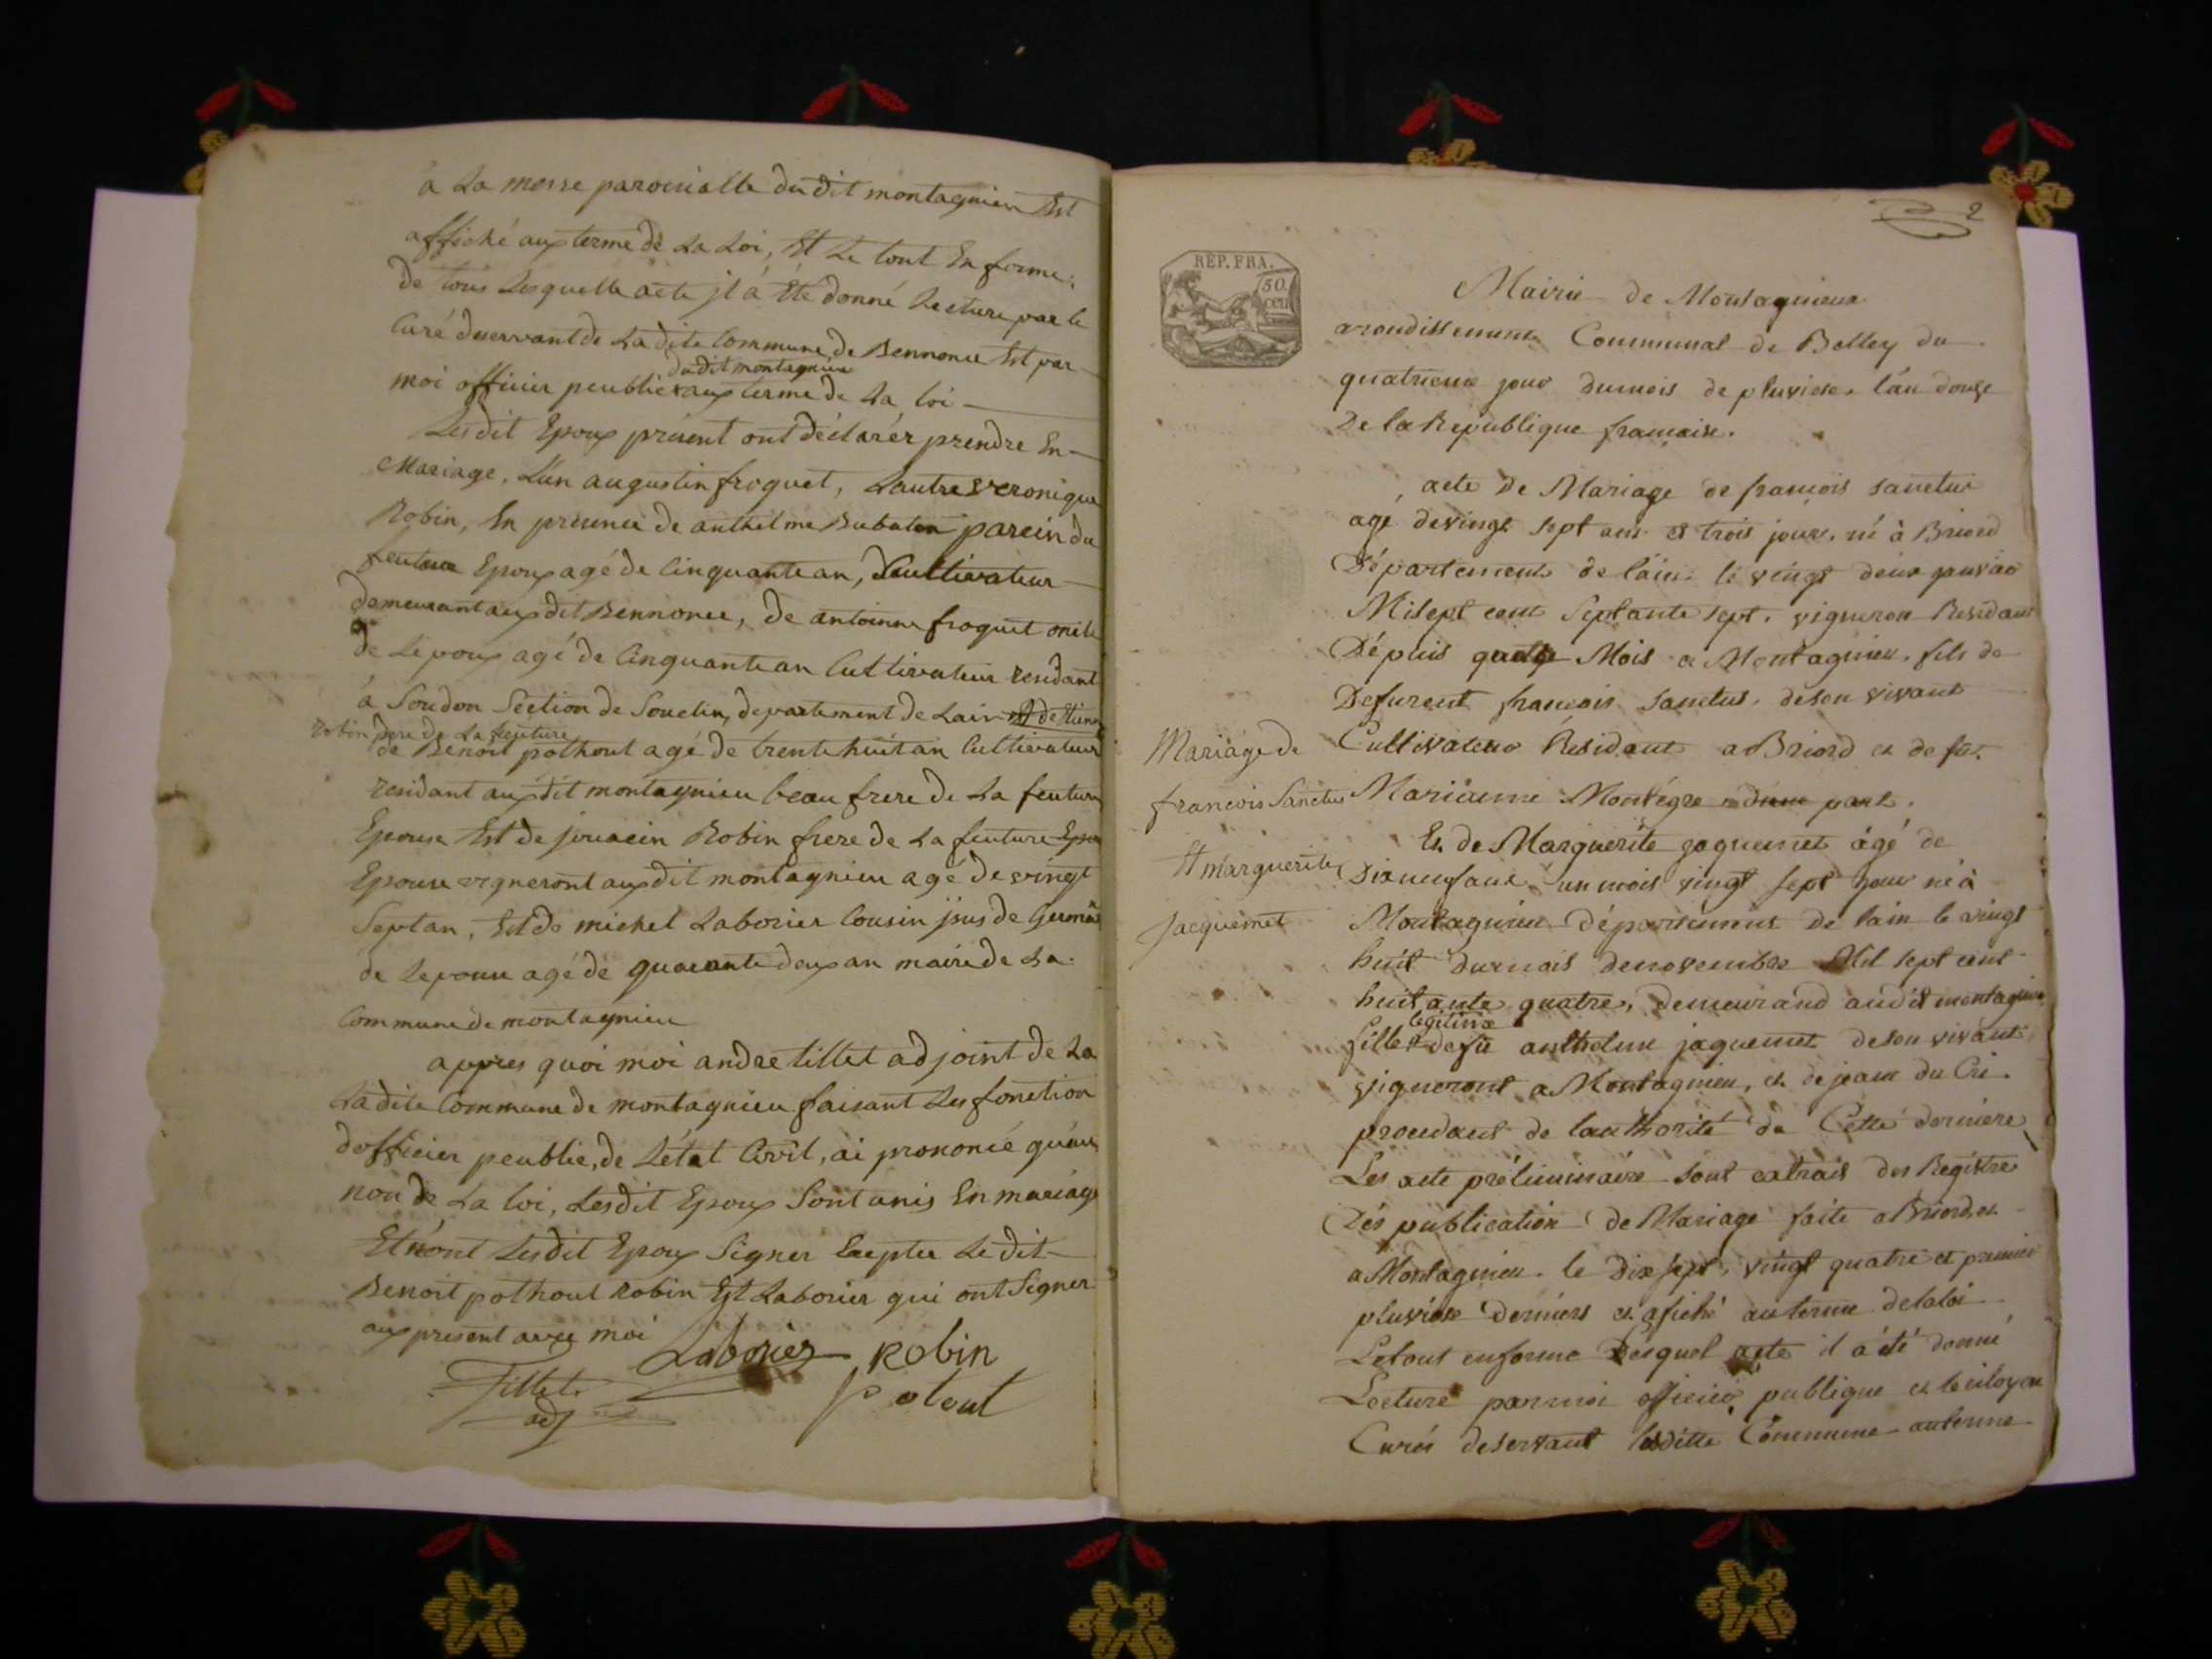 à La messe paroissialle du dit montagnieu Est
affiché aux terme de La Loi, Et Le tout En forme,
de tous Lesquelle acte jl á Eté donné Lecture par le
Curé deservant de La dite Commune de Bennonce Est par
du dit montagnieu
moi officier peublic aux terme de La loi
Lesdit Epoux présent ont déclarér prendre En
Mariage, L'ún augustin froquet, Lautre veronique
Robin, En presence de anthelme Bubaton parein du
feuture Epoux agé de Cinquante an, Cultivateur
demeurant aux dit Bennonce, de antoinne froquet oncle
de Lepoux agé de Cinquante an Cultivateur residant
á Soudon Séction de Souclin, departement de Lain Et de Etienne
robin pere de La feuture
de Benoit pothout agé de trente huit an Cultivateur
residant aux dit montagnieu beau frere de La feuture
Epouse Est de jouacin Robin frere de La feuture Epou
Epouse vigneront aux dit montagnieu agé de vingt
Sept an, Est de michel Laborier Cousin jsus de Germain
de Lepouse agé de quarante deux an maire de La
Commune de montagnieu
appres quoi moi andre tillet adjoint de La
Ladite Commune de montagnieu faisant Les fonction
dofficier peublic, de L'état Civil, ai prononcé qu'au
non de La loi, Lesdit Epoux Sont unis En mariage
Et n'ont Lesdit Epoux Signer Excepter Ledit
Benoit pothout Robin Est Laborier qui ont Signer
aux present avec moi
Laborier Robin
Tillet Potout
adj
2
REP. FRA.
50
cen
Mairie de Montagnieux
arondissement Communal de Belley du
quatrieme jour dumois de pluviose, l'an douze
De la Republique française.
acte de Mariage de françois sanctus
agé devingt sept ans et trois jours, né à Briord
Département de l'ain le vingt deux janvier
Milsept cent Septante sept, vigneron Residant
Dépuis quatre Mois a Montagnieu, fils de
Defurent françois Sanctus, deson vivant
Cultivateur Résidant a Briord et de fue
Marianne Montégre dune part.
Mariage de
françois Sanctus
Et marguerite
Jacquemet
Et de Marguerite jaquemet agé de
Dix neuf ans un mois vingt sept jour né à
Montagnieu Département de lain le vingt
huit dumois denovembre Mil sept cent
huitante quatre, demeurand audit montagnieu
legitime
fille de fû anthelme jaquemet deson vivant
vigneront a Montagnieu, et de jeanne du Cri.
procedant de lauthorité de Cette derniere
Les acte préliminaire sont extrait des Registre
Dés publication de Mariage faite a Briord, et
a Montagnieu. le dix sept, vingt quatre et premier
pluviose derniers et afiché au terme delaloi
Letout enforme Désquel acte il a été donné
Lecture parmoi officier publique et le citoyen
Curés deservant ladite Commune auterme